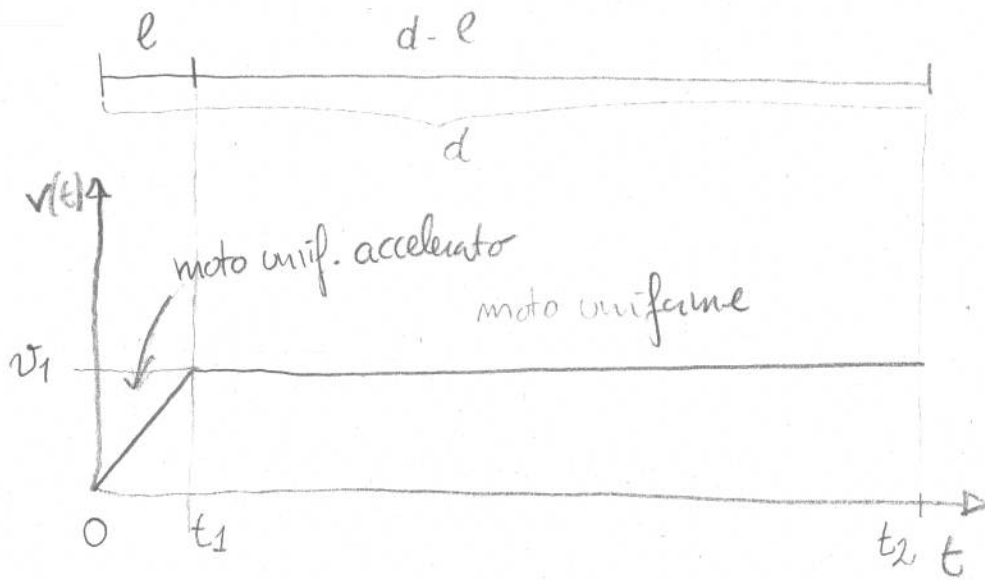 l d - l
d
v(t)
moto unif. accelerato
moto uniforme
v1
0 t1 t2 t